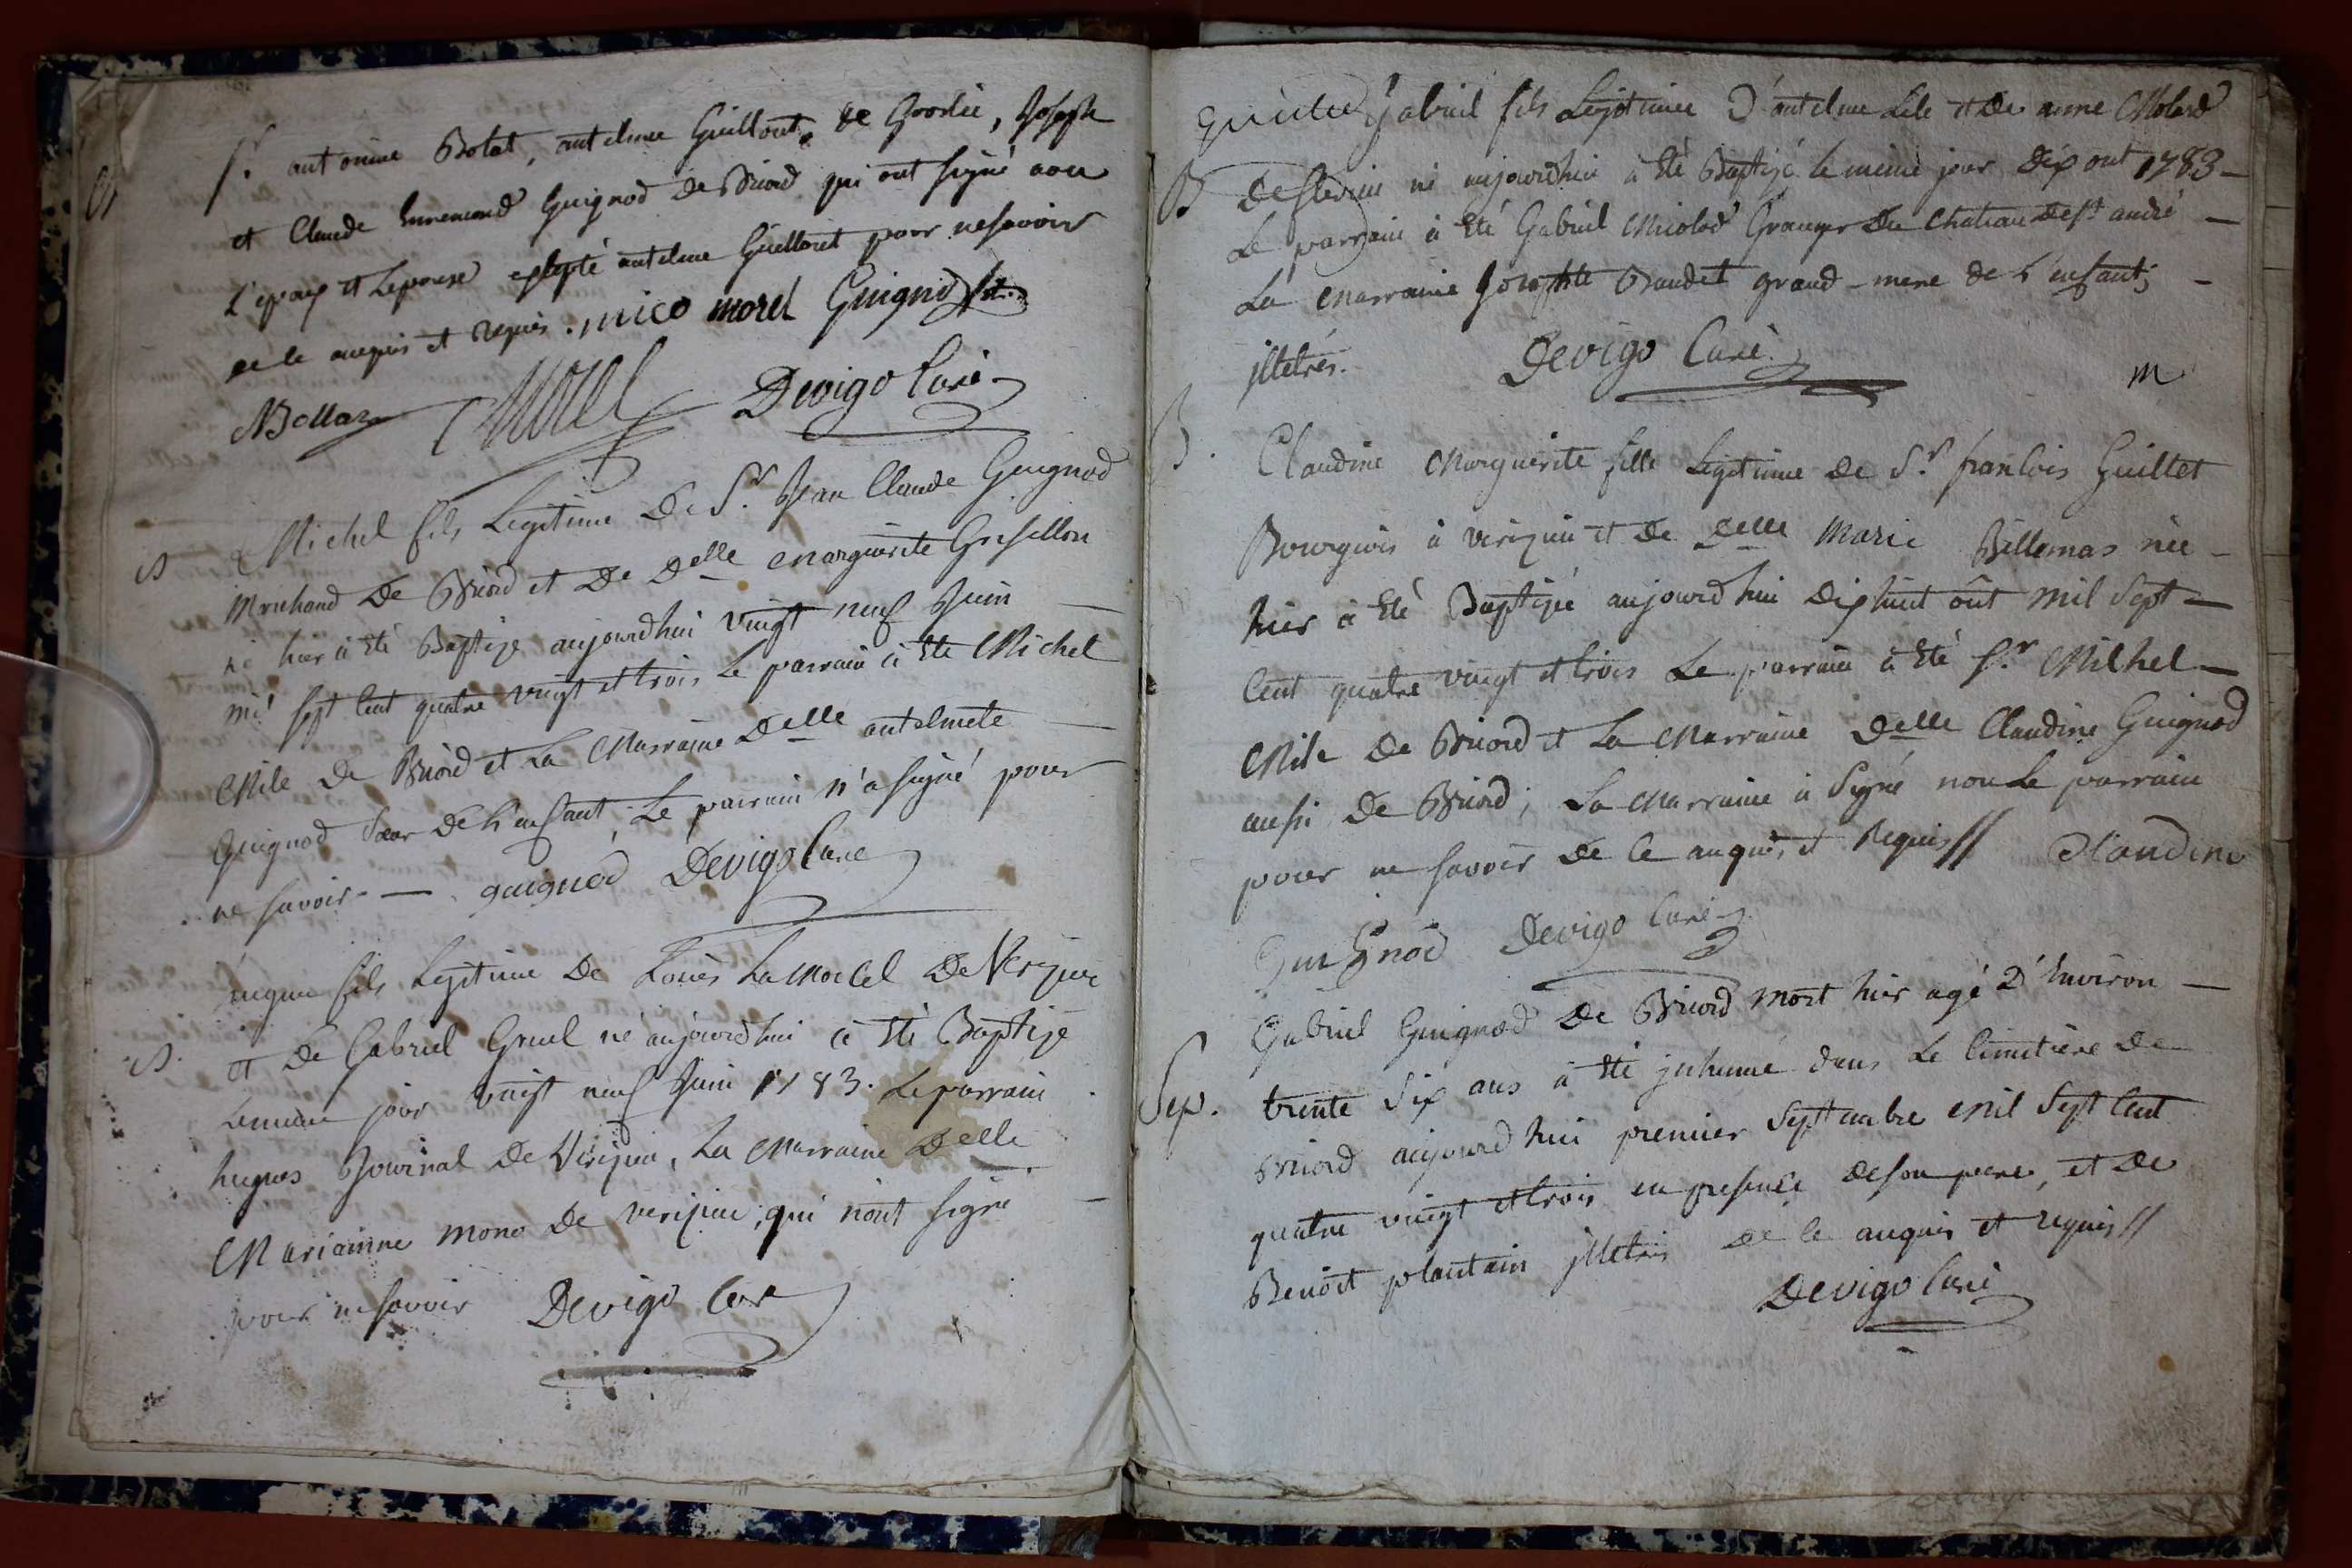 Sr antoine Bolat, antelme Guillout, de Groslee, Joseph
et Claude Ennemond Guignod de Briord qui ont signé avec
L'epoux et Lepouse excepté antelme Guillout pour ne savoir
de ce anquis et requis. mico morel Guignod
Bollaz Morel Devigo Curé
B Michel fils Legitime De Sr. Jean Claude Guignod
Marchand De Briord et De Delle Marguerite Grisollon
né hier à Eté Baptizé aujourdhui vingt neuf Juin
mil sept Cent quatre vingt et trois Le parrain à Eté Michel
Mile De Briord et La Marraine Delle antelmete
Guignod Sœur De L'enfant, Le parrain n'a signé pour
ne savoir - guignod Devigo Curé
fils Legitime De Louis De Verizieu
B. et De Gabriel Gruel né aujourdhui à Eté Baptizé
Lemême jour vingt neuf Juin 1783. Le parrain
hugues Journal De Virizieu, La Marraine Delle
Marianne mono De verizieu, qui n'ont signé
pour ne savoir Devigo Cure
Gabriel fils Legitime D'antelme Lile et De anne Molard
B De flevieu né aujourdhui à Eté Baptizé le même jour Dix out 1783 -
Le parrain à Eté Gabriel Miolod Granger Du Chateau De st andré -
La Marraine Josephte Baudet grand-mere de L'enfant; -
jlletrés. Devigo Curé.
m
B. Claudine Marguerite fille Legitime De Sr. francois Guillet
Bourgeois à verizieu et De Delle Marie Billemas née -
hier à Eté Baptizée aujourdhui Dixhuit out mil Sept -
Cent quatre vingt et trois Le parrain à Eté Sr. Michel -
Mile De Briord et La Marraine Delle Claudine Guignod
aussi De Briord; La Marraine à Signé non Le parrain
pour ne savoir De Ce anquis et Requis // Claudine
Guignod Devigo Curé
Gabriel Guignod De Briord mort hier agé D'Environ -
Sep. trente Six ans à Eté jnhumé dans Le Cimetière De
Briord aujourdhui premier Septembre Mil Sept Cent
quatre vingt et trois en presence De son pere, et De
Benoit plantain jlletrés De Ce anquis et requis //
Devigo Curé